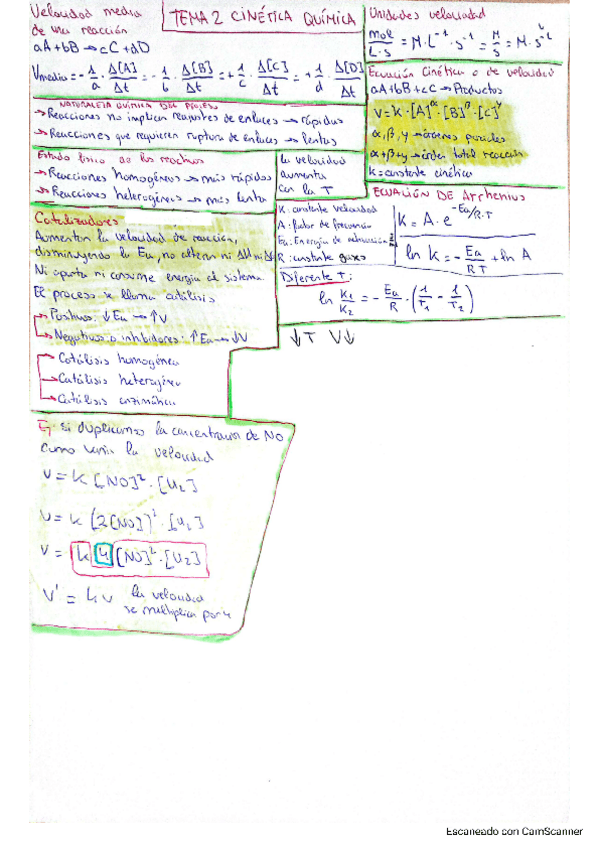 Velocidad media
de una reacción
aA+bB → cC+dD
Vmedia = -1/a · Δ[A]/Δt = -1/b · Δ[B]/Δt = +1/c · Δ[C]/Δt = +1/d · Δ[D]/Δt
TEMA 2 CINÉTICA QUÍMICA
Unidades velocidad
mol/L·s = M·L⁻¹·s⁻¹ = M/s = M·s⁻¹
Ecuación cinética o de velocidad
aA+bB+cC → Productos
V = k·[A]^α·[B]^β·[C]^γ
α, β, γ → órdenes parciales
α+β+γ → orden total reacción
k = constante cinética
NATURALEZA QUÍMICA DEL PROCESO
→ Reacciones no implican reajustes de enlaces → rápidas
→ Reacciones que requieren ruptura de enlaces → lentas
Estado físico de los reactivos
→ Reacciones homogéneas → más rápidas
→ Reacciones heterogéneas → más lenta
La velocidad
aumenta
con la T
ECUACIÓN DE Arrhenius
K: constante velocidad
A: factor de frecuencia
Ea: Energía de activación
R: constante gases
K = A·e^(-Ea/R·T)
ln K = -Ea/RT + ln A
Diferente T:
ln K₁/K₂ = -Ea/R · (1/T₁ - 1/T₂)
↓T V↓
Catalizadores
Aumentan la velocidad de reacción,
disminuyendo la Ea, no alteran ni ΔH ni ΔG
Ni aporta ni consume energía al sistema
El proceso se llama catálisis
→ Positivos: ↓Ea → ↑V
→ Negativos o inhibidores: ↑Ea → ↓V
→ Catálisis homogénea
→ Catálisis heterogénea
→ Catálisis enzimática
Ej si duplicamos la concentración de NO
como varía la velocidad
V = k [NO]²·[H₂]
V = k (2[NO])²·[H₂]
V = k 4 [NO]²·[H₂]
V' = 4v la velocidad
se multiplica por 4
Escaneado con CamScanner